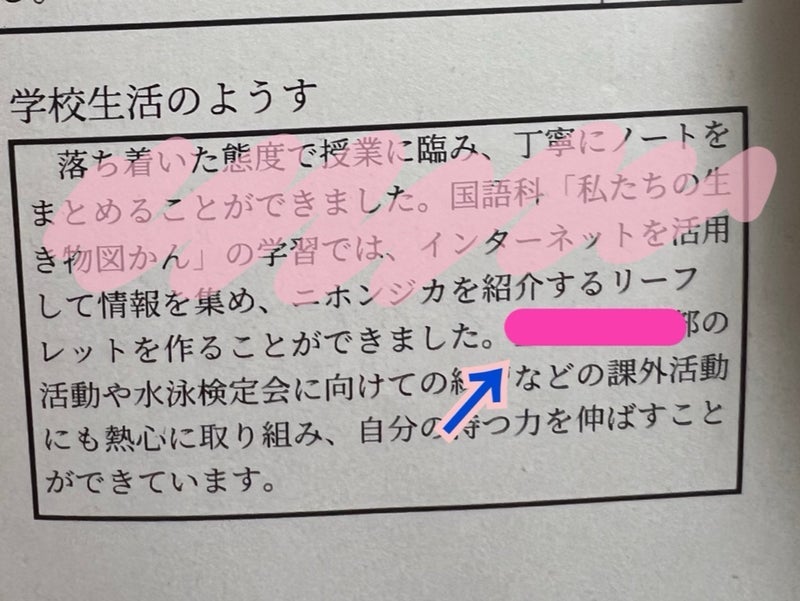 学校生活のようす
落ち着いた態度で授業に臨み、丁寧にノートを
まとめることができました。国語科「私たちの生
き物図かん」の学習では、インターネットを活用
して情報を集め、ニホンジカを紹介するリーフ
レットを作ることができました。部の
活動や水泳検定会に向けての などの課外活動
にも熱心に取り組み、自分の持つ力を伸ばすこと
ができています。